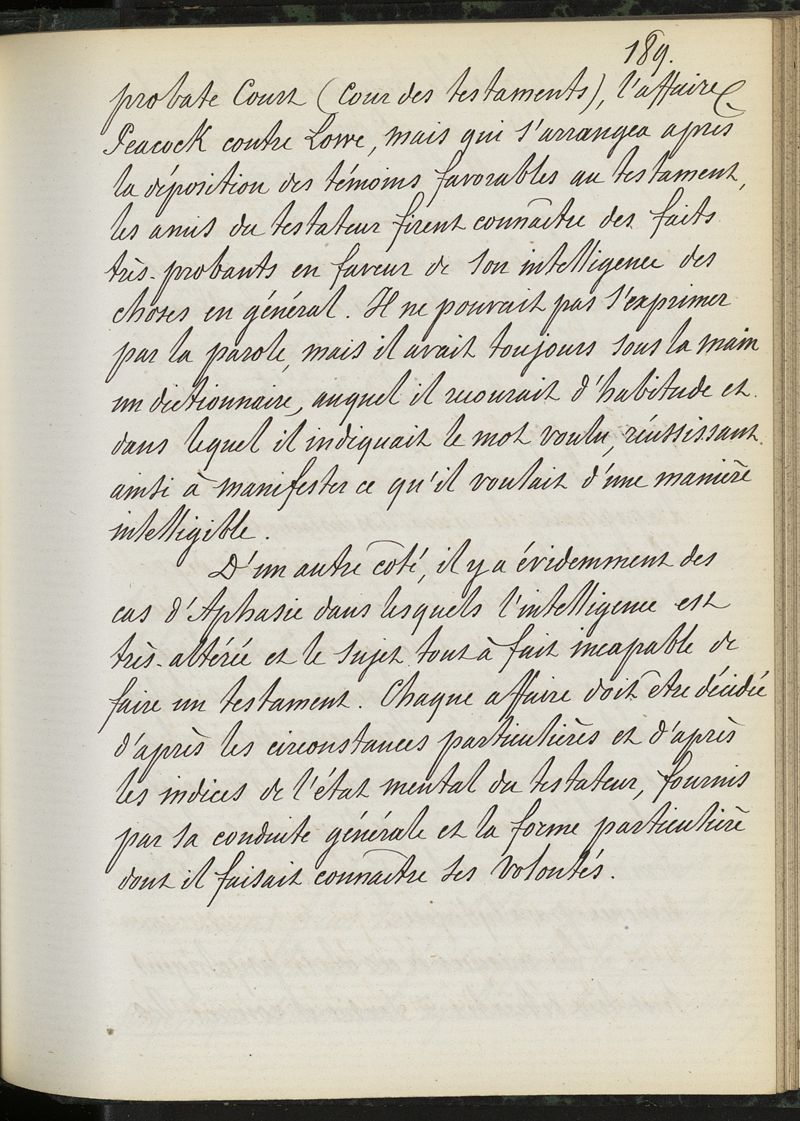 189.
probate Court (Cour des testaments), l'affaire
Peacock contre Lowe, mais qui s'arrangea après
la déposition des témoins favorables au testament,
les amis du testateur firent connaître des faits
très-probants en faveur de son intelligence des
choses en général. Il ne pouvait pas s'exprimer
par la parole, mais il avait toujours sous la main
un dictionnaire, auquel il recourait d'habitude et
dans lequel il indiquait le mot voulu, réussissant
ainsi à manifester ce qu'il voulait d'une manière
intelligible.
D'un autre côté, il y a évidemment des
cas d'Aphasie dans lesquels l'intelligence est
très-altérée et le sujet tout à fait incapable de
faire un testament. Chaque affaire doit être décidée
d'après les circonstances particulières et d'après
les indices de l'état mental du testateur, fournis
par sa conduite générale et la forme particulière
dont il faisait connaître ses volontés.